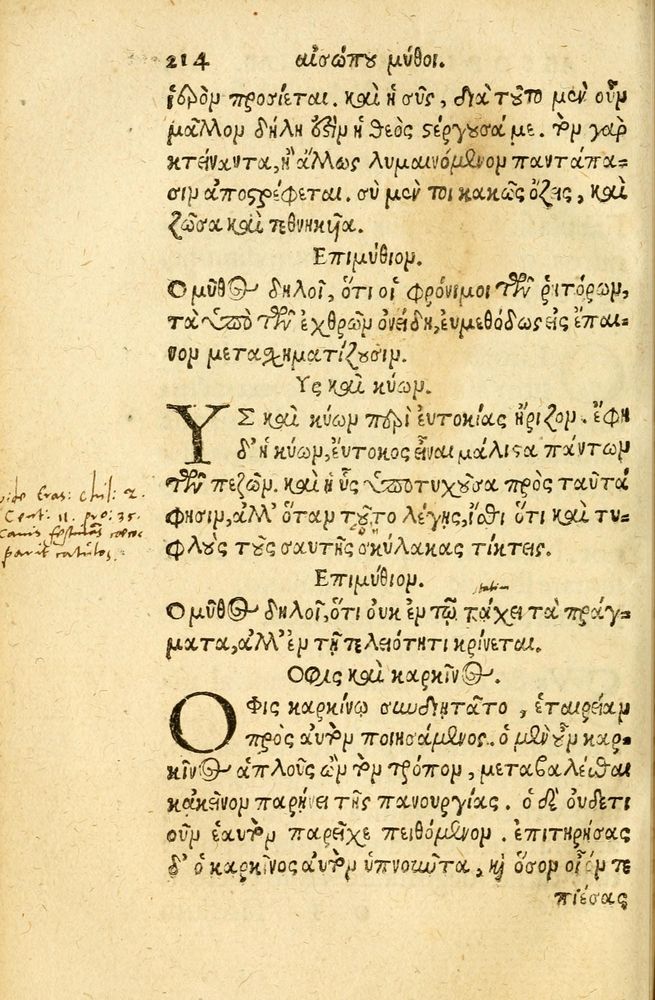 214 αἰσώπου μύθοι.
ἱερὸν προσίεται. καὶ ἡ σῦς, διὰ τοῦτο μὲν οὖν
μᾶλλον δήλη ἐστὶν ἡ θεὸς στέργουσά με. τὸν γὰρ
κτείναντα, ἢ ἄλλως λυμαινόμενον παντάπα-
σιν ἀποστρέφεται. σὺ μέν τοι κακῶς ὄζεις, καὶ
ζῶσα καὶ τεθνηκῖα.
Επιμύθιον.
Ο μῦθος δηλοῖ, ὅτι οἱ φρόνιμοι τῶν ῥητόρων,
τὰ ὑπὸ τῶν ἐχθρῶν ὀνείδη, ευμεθόδως εἰς ἔπαι-
νον μετασχηματίζουσιν.
Υς καὶ κύων.
ΥΣ καὶ κύων περὶ ἐυτοκίας ἤριζον. ἔφη
δ' ἡ κύων, ἔυτοκος εἶναι μάλιστα πάντων
τῶν πεζῶν. καὶ ἡ ὗς ὑποτυχοῦσα πρὸς ταῦτά
φησιν, ἀλλ' ὅταν τοῦτο λέγῃς, ἴσθι ὅτι καὶ τυ-
φλοὺς τοὺς σαυτῆς σκύλακας τίκτεις.
Επιμύθιον.
Ο μῦθος δηλοῖ, ὅτι ὀυκ ἐν τῷ τάχει τὰ πράγ-
ματα, ἀλλ' ἐν τῇ τελειότητι κρίνεται.
Οφις καὶ καρκῖνος.
ΟΦις καρκίνῳ συνδιῃτᾶτο, ἑταιρείαν
πρὸς ἀυτὸν ποιησάμενος. ὁ μὲν οὖν καρ-
κῖνος ἁπλοῦς ὢν τὸν τρόπον, μεταβαλεῖσθαι
κἀκεῖνον παρῄνει τῆς πανουργίας. ὁ δὲ ὀυδετι
οῦν ἑαυτὸν παρεῖχε πειθόμενον. ἐπιτηρήσας
δ' ὁ καρκῖνος ἀυτὸν ὑπνοῦντα, κỳ ὅσον οἷόν τε
πιέσας
vide Eras: chil: 2.
Cent: 11. pro: 35.
Canis festinans caecos
parit catulos.
statim